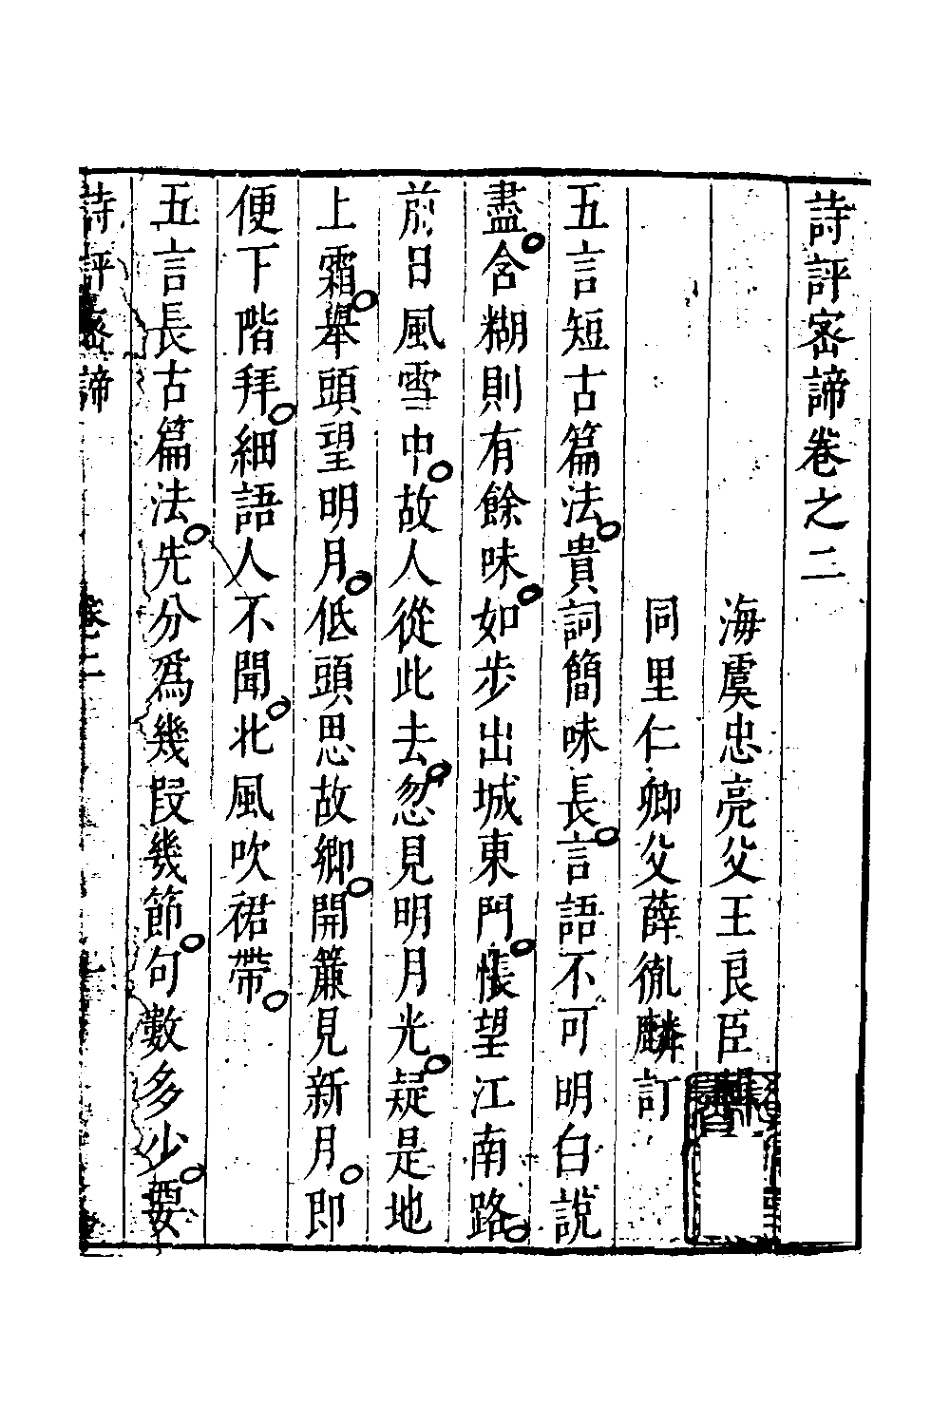 詩評密諦卷之二
海虞忠亮父王良臣輯
同里仁卿父薛胤麟訂
五言短古篇法貴詞簡味長言語不可明白說
盡含糊則有餘味如步出城東門悵望江南路
前日風雪中故人從此去忽見明月光疑是地
上霜舉頭望明月低頭思故鄉開簾見新月即
便下階拜細語人不聞北風吹裙帶
五言長古篇法先分為幾段幾節句數多少要
詩評密諦 卷二